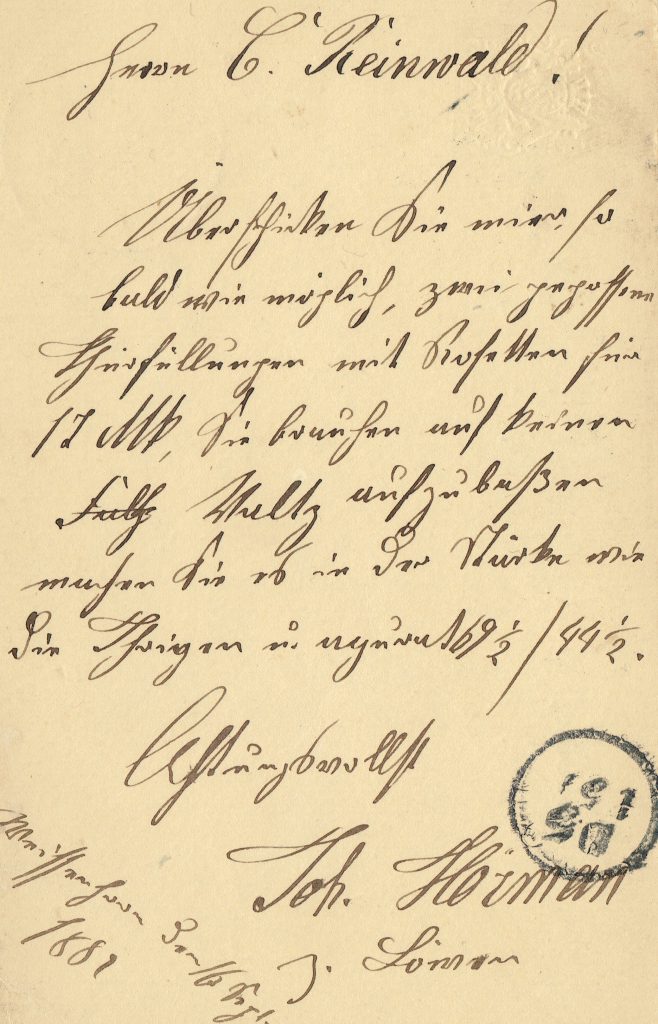 Herrn C. Reinwald!
Überschicken Sie mier, so
bald wie möglich, zwei gegossene
Thürfüllungen mit Rosetten für
17 Mk, Sie brauchen auf keinen
Falz aufzubaßen
machen Sie es in der Stärke wie
die Ihrigen u. agurat 69 1/2 / 44 1/2.
Achtungsvollst
Joh. Hörman
z. Löwen
Weissenhorn den
188